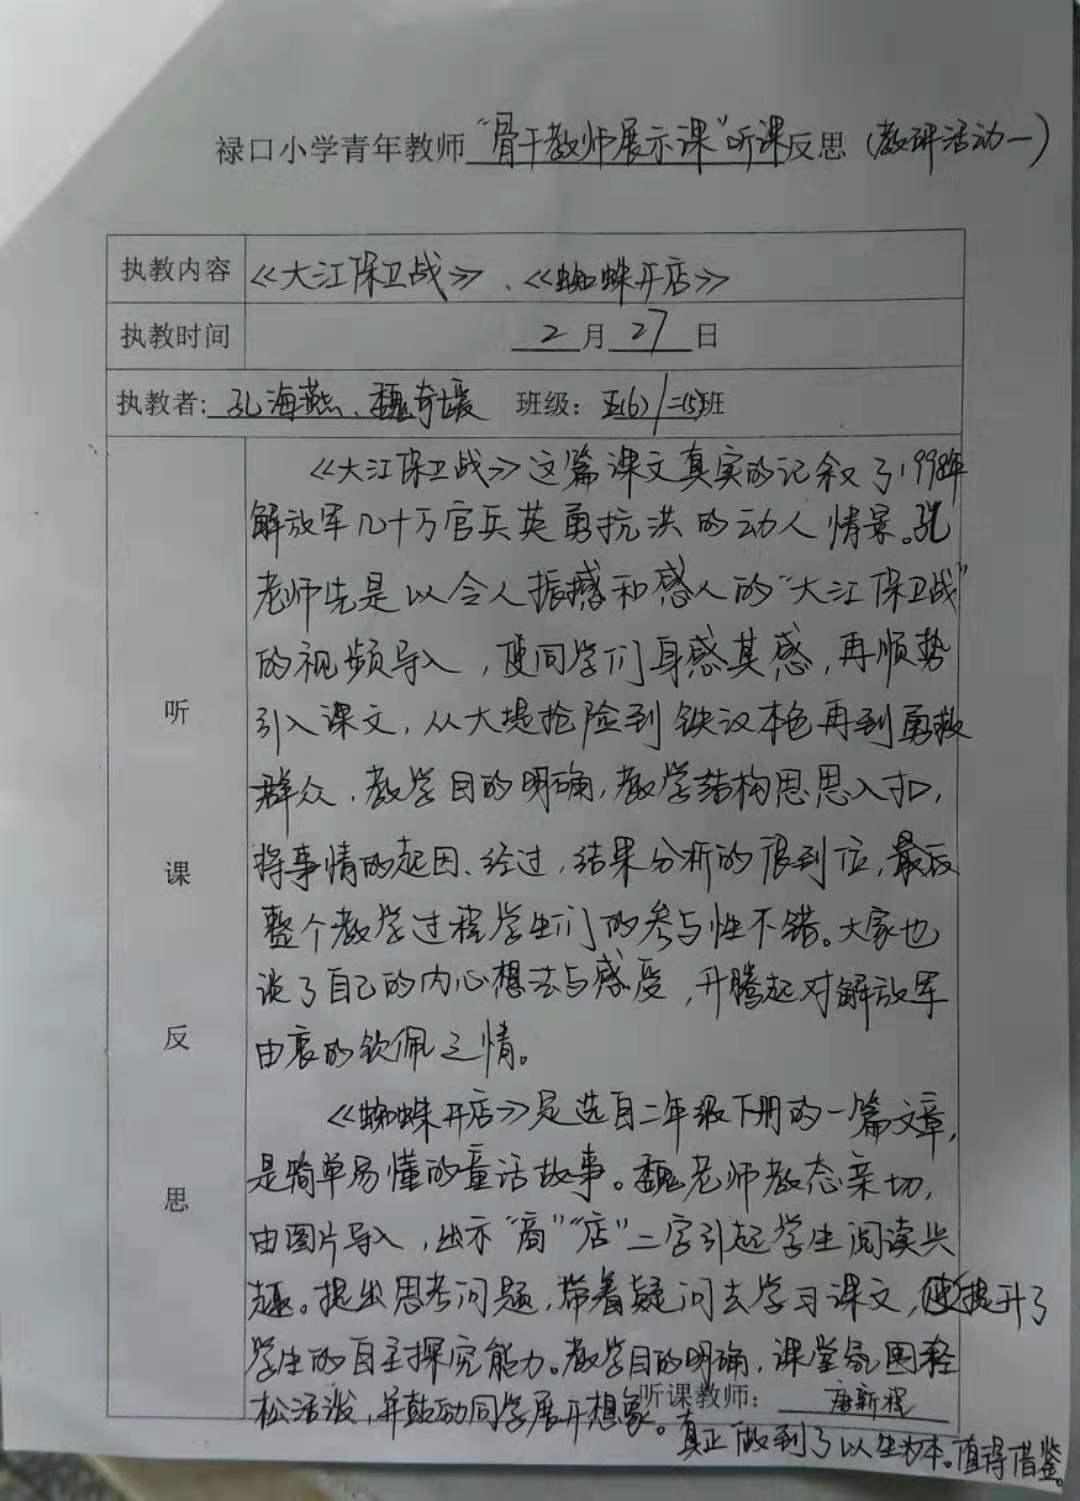 禄口小学青年教师“骨干教师展示课”听课反思（教研活动一）
执教内容 《大江保卫战》、《蜘蛛开店》
执教时间 2月27日
执教者：孔海燕、魏奇媛 班级：五(6)/二(5)班
听课反思
《大江保卫战》这篇课文真实的记叙了1998年
解放军几十万官兵英勇抗洪的动人情景。孔
老师先是以令人振撼和感人的“大江保卫战”
的视频导入，使同学们身感其感，再顺势
引入课文，从大堤抢险到铁汉本色再到勇救
群众，教学目的明确，教学结构思思入扣，
将事情的起因、经过，结果分析的很到位，最后
整个教学过程学生们的参与性不错。大家也
谈了自己的内心想法与感受，升腾起对解放军
由衷的钦佩之情。
《蜘蛛开店》是选自二年级下册的一篇文章，
是简单易懂的童话故事。魏老师教态亲切，
由图片导入，出示“商”“店”二字引起学生阅读兴
趣。提出思考问题，带着疑问去学习课文，提升了
学生的自主探究能力。教学目的明确，课堂氛围轻
松活泼，并鼓励同学展开想象。真正做到了以生为本。值得借鉴。
听课教师：唐新程